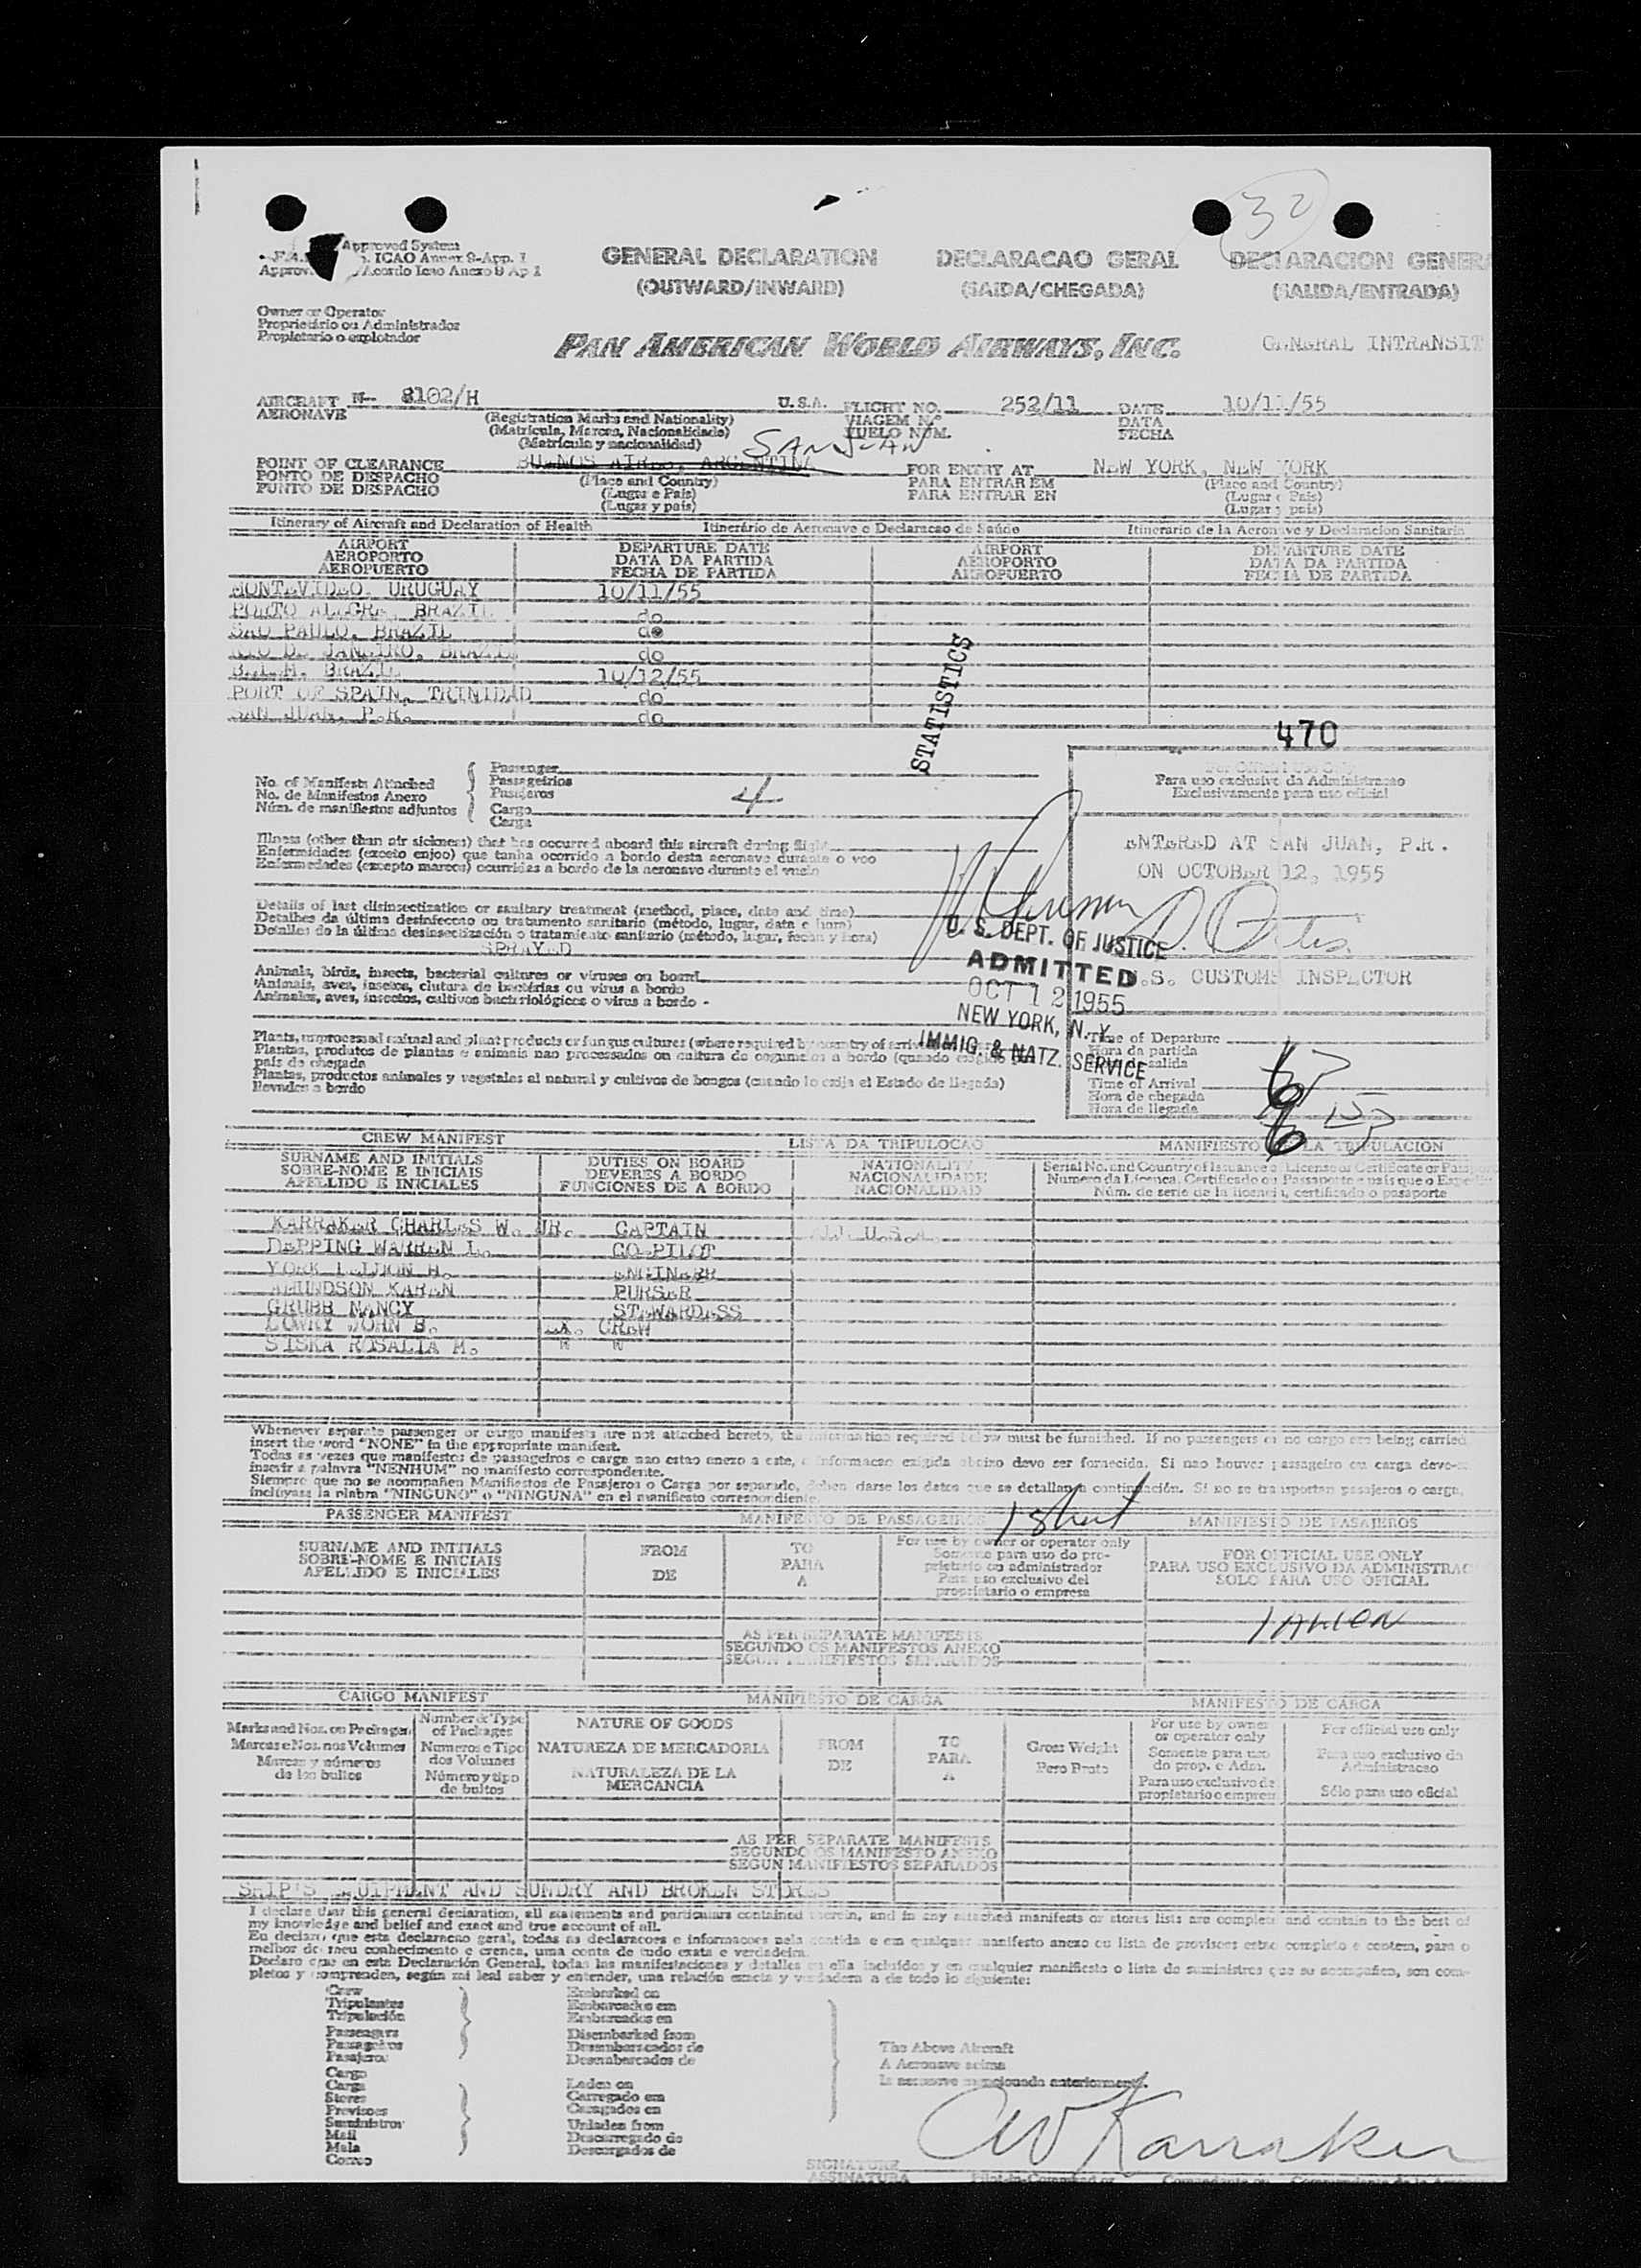 30
Approved System
ICAO Annex 9-App. 1
Acordo Icao Anexo 9 Ap 1
GENERAL DECLARATION DECLARACAO GERAL DECLARACION GENERA
(OUTWARD/INWARD) (SAIDA/CHEGADA) (SALIDA/ENTRADA)
Owner or Operator
Proprietário ou Administrador
Propietario o explotador
PAN AMERICAN WORLD AIRWAYS, INC. GENERAL INTRANSIT
AIRCRAFT N- 8102/H U.S.A. FLIGHT NO. 252/11 DATE 10/11/55
AERONAVE (Registration Marks and Nationality) VIAGEM N.º DATA
(Matrícula, Marcas, Nacionalidade) VUELO NÚM. FECHA
(Matrícula y nacionalidad) SAN JUAN
POINT OF CLEARANCE BUENOS AIRES, ARGENTINA FOR ENTRY AT NEW YORK, NEW YORK
PONTO DE DESPACHO (Place and Country) PARA ENTRAR EM (Place and Country)
PUNTO DE DESPACHO (Lugar e País) PARA ENTRAR EN (Lugar e País)
(Lugar y país) (Lugar y país)
Itinerary of Aircraft and Declaration of Health Itinerário de Aeronave e Declaracao de Saúde Itinerario de la Aeronave y Declaracion Sanitaria
AIRPORT DEPARTURE DATE AIRPORT DEPARTURE DATE
AEROPORTO DATA DA PARTIDA AEROPORTO DATA DA PARTIDA
AEROPUERTO FECHA DE PARTIDA AEROPUERTO FECHA DE PARTIDA
MONTEVIDEO, URUGUAY 10/11/55
PORTO ALEGRE, BRAZIL do
SAO PAULO, BRAZIL do
RIO DE JANEIRO, BRAZIL do
BELEM, BRAZIL 10/12/55
PORT OF SPAIN, TRINIDAD do
SAN JUAN, P.R. do
STATISTICS
470
No. of Manifests Attached Passenger
No. de Manifestos Anexo Passageirios
Núm. de manifiestos adjuntos Pasajeros 4
Cargo
Carga
For Official Use Only
Para uso exclusivo da Administracao
Exclusivamente para uso oficial
Illness (other than air sickness) that has occurred aboard this aircraft during flight
Enfermidades (exceto enjoo) que tanha ocorrido a bordo desta aeronave durante o voo
Enfermedades (excepto mareos) ocurridas a bordo de la aeronave durante el vuelo
ENTERED AT SAN JUAN, P.R.
ON OCTOBER 12, 1955
Details of last disinsectization or sanitary treatment (method, place, date and time)
Detalhes da última desinfeccao ou tratamento sanitario (método, lugar, data e hora)
Detalles de la última desinsectización o tratamiento sanitario (método, lugar, fecha y hora)
SPRAYED
U. S. DEPT. OF JUSTICE
ADMITTED
OCT 12 1955
NEW YORK, N. Y.
IMMIG. & NATZ. SERVICE
U.S. CUSTOMS INSPECTOR
Animals, birds, insects, bacterial cultures or viruses on board
Animais, aves, insetos, clutura de bactérias ou virus a bordo
Animales, aves, insectos, cultivos bacteriológicos o virus a bordo -
Plants, unprocessed animal and plant products or fungus cultures (where required by country of arrival
Plantas, produtos de plantas e animais nao processados ou cultura de cogumelos a bordo (quando exigido
país de chegada
Plantas, productos animales y vegetales al natural y cultivos de hongos (cuando lo exija el Estado de llegada)
llevados a bordo
Time of Departure
Hora da partida
salida
Time of Arrival
Hora de chegada
Hora de llegada
CREW MANIFEST LISTA DA TRIPULOCAO MANIFIESTO LA TRIPULACION
SURNAME AND INITIALS DUTIES ON BOARD NATIONALITY Serial No. and Country of Issuance of License or Certificate or Passport
SOBRE-NOME E INICIAIS DEVERES A BORDO NACIONALIDADE Numero da Licenca, Certificado ou Passaporte e pais que o
APELLIDO E INICIALES FUNCIONES DE A BORDO NACIONALIDAD Núm. de serie de la licencia, certificado o pasaporte
KARRAKER CHARLES W. JR. CAPTAIN ALL U.S.A.
DEPPING WARREN L. CO-PILOT
YORK H. ENGINEER
AMUNDSON KAREN PURSER
GRUBB NANCY STEWARDESS
LOWRY JOHN B. EX. CREW
SISKA ROSALIA M. " "
Whenever separate passenger or cargo manifests are not attached hereto, the information required below must be furnished. If no passengers or no cargo are being carried
insert the word "NONE" in the appropriate manifest.
Todas as vezes que manifestos de passageiros e carga nao estao anexo a este, a informacao exigida abaixo devo ser fornecida. Si nao houver passageiro ou carga deve-se
inserir a palavra "NENHUM" no manifesto correspondente.
Siempre que no se acompañen Manifiestos de Pasajeros o Carga por separado, deben darse los datos que se detallan a continuación. Si no se transportan pasajeros o carga,
incluyase la plabra "NINGUNO" o "NINGUNA" en el manifiesto correspondiente.
1 Sheet
PASSENGER MANIFEST MANIFESTO DE PASSAGEIROS MANIFIESTO DE PASAJEROS
SURNAME AND INITIALS FROM TO For use by owner or operator only FOR OFFICIAL USE ONLY
SOBRE-NOME E INICIAIS DE PARA Somente para uso do pro- PARA USO EXCLUSIVO DA ADMINISTRAC
APELLIDO E INICIALES A prietario ou administrador SOLO PARA USO OFICIAL
Para uso exclusivo del
propietario o empresa
1 ALIEN
AS PER SEPARATE MANIFESTS
SEGUNDO OS MANIFESTOS ANEXO
SEGUN MANIFIESTOS SEPARADOS
CARGO MANIFEST MANIFIESTO DE CARGA MANIFESTO DE CARGA
Marks and Nos. on Packages Number & Type of Packages NATURE OF GOODS FROM TO Gross Weight For use by owner or operator only For official use only
Marcas e Nos. nos Volumes Numeros e Tipo dos Volumes NATUREZA DE MERCADORIA DE PARA Peso Bruto Somente para uso do prop. e Adm. Para uso exclusivo da Administracao
Marcas y números de los bultos Número y tipo de bultos NATURALEZA DE LA MERCANCIA A Para uso exclusivo de propietario o empresa Sólo para uso oficial
AS PER SEPARATE MANIFESTS
SEGUNDO OS MANIFESTO ANEXO
SEGUN MANIFIESTOS SEPARADOS
SHIP'S EQUIPMENT AND SUNDRY AND BROKEN STORES
I declare that this general declaration, all statements and particulars contained therein, and in any attached manifests or stores lists are complete and contain to the best of
my knowledge and belief and exact and true account of all.
Eu declaro que esta declaracao geral, todas as declaracoes e informacoes nela contida e em qualquer manifesto anexo ou lista de provisoes estao completo e contem, para o
melhor de meu conhecimento e crenca, uma conta de tudo exata e verdadeira.
Declaro que en este Declaración General, todas las manifestaciones y detalles en ella incluídos y en cualquier manifiesto o lista de suministros que se acompañen, son com-
pletos y comprenden, según mi leal saber y entender, una relación exacta y verdadera de todo lo siguiente:
Crew Embarked on
Tripulantes Embarcados em
Tripulación Embarcados en
Passengers Disembarked from
Passageiros Desembarcados de
Pasajeros Desembarcados de
Cargo
Carga Laden on
Stores Carregado em
Previsoes Cargados en
Suministros Unladen from
Mail Descarregado de
Mala Descargados de
Correo
The Above Aircraft
A Aeronave acima
la aeronave mencionada anteriormente.
CW Karraker
SIGNATURE
ASSINATURA Pilot-in-Command or